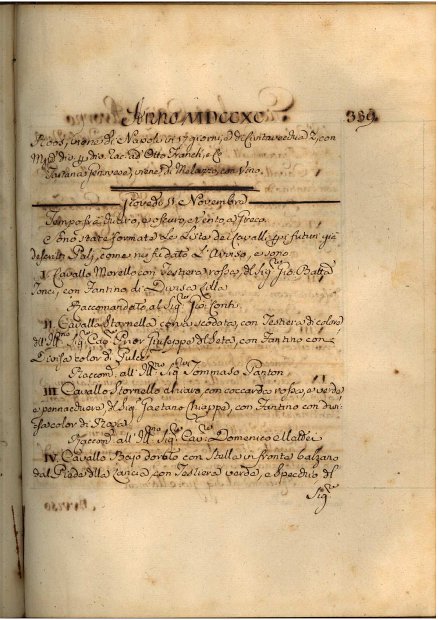 Anno MDCCXC. 389.
Roos, viene di Napoli in 17 giorni, e di Civitavecchia 2, con
Otto Franck, e C.
Tartana viene di Melazzo, con Vino.
Giovedì 11 Novembre
Tempo frà chiaro, e oscuro, e Vento a Greco.
Sono state formate Le Liste dei Cavalli, futuri già
descritti Palj, come ne fù dato L'Avviso, e sono
I. Cavallo Morello con testiera rossa, del Sig.r Gio. Batta
con Fantino di Divisa Lilla
Raccomandato al Sig.r Conti
II. Cavalla Stornella con coda scodata, con Testiera di colore
dell' Ill.mo Sig.r Cap. Giuseppe con Fantino con
Divisa color di Pulce
Raccom. all' Ill.mo Sig.r Tommaso Panton
III. Cavallo Stornello chiaro, con coccarda rossa, e verde
e pennacchiera del Sig.r Gaetano Chiappe, con Fantino con divi-
sa color di Rosa
Raccom. all' Ill.mo Sig.r Cav. Domenico Mattei
IV. Cavallo Bajo dorato con Stella in fronte balzano
dal Piede della Lancia con Testiera verde, e Specchio del
Sig.r